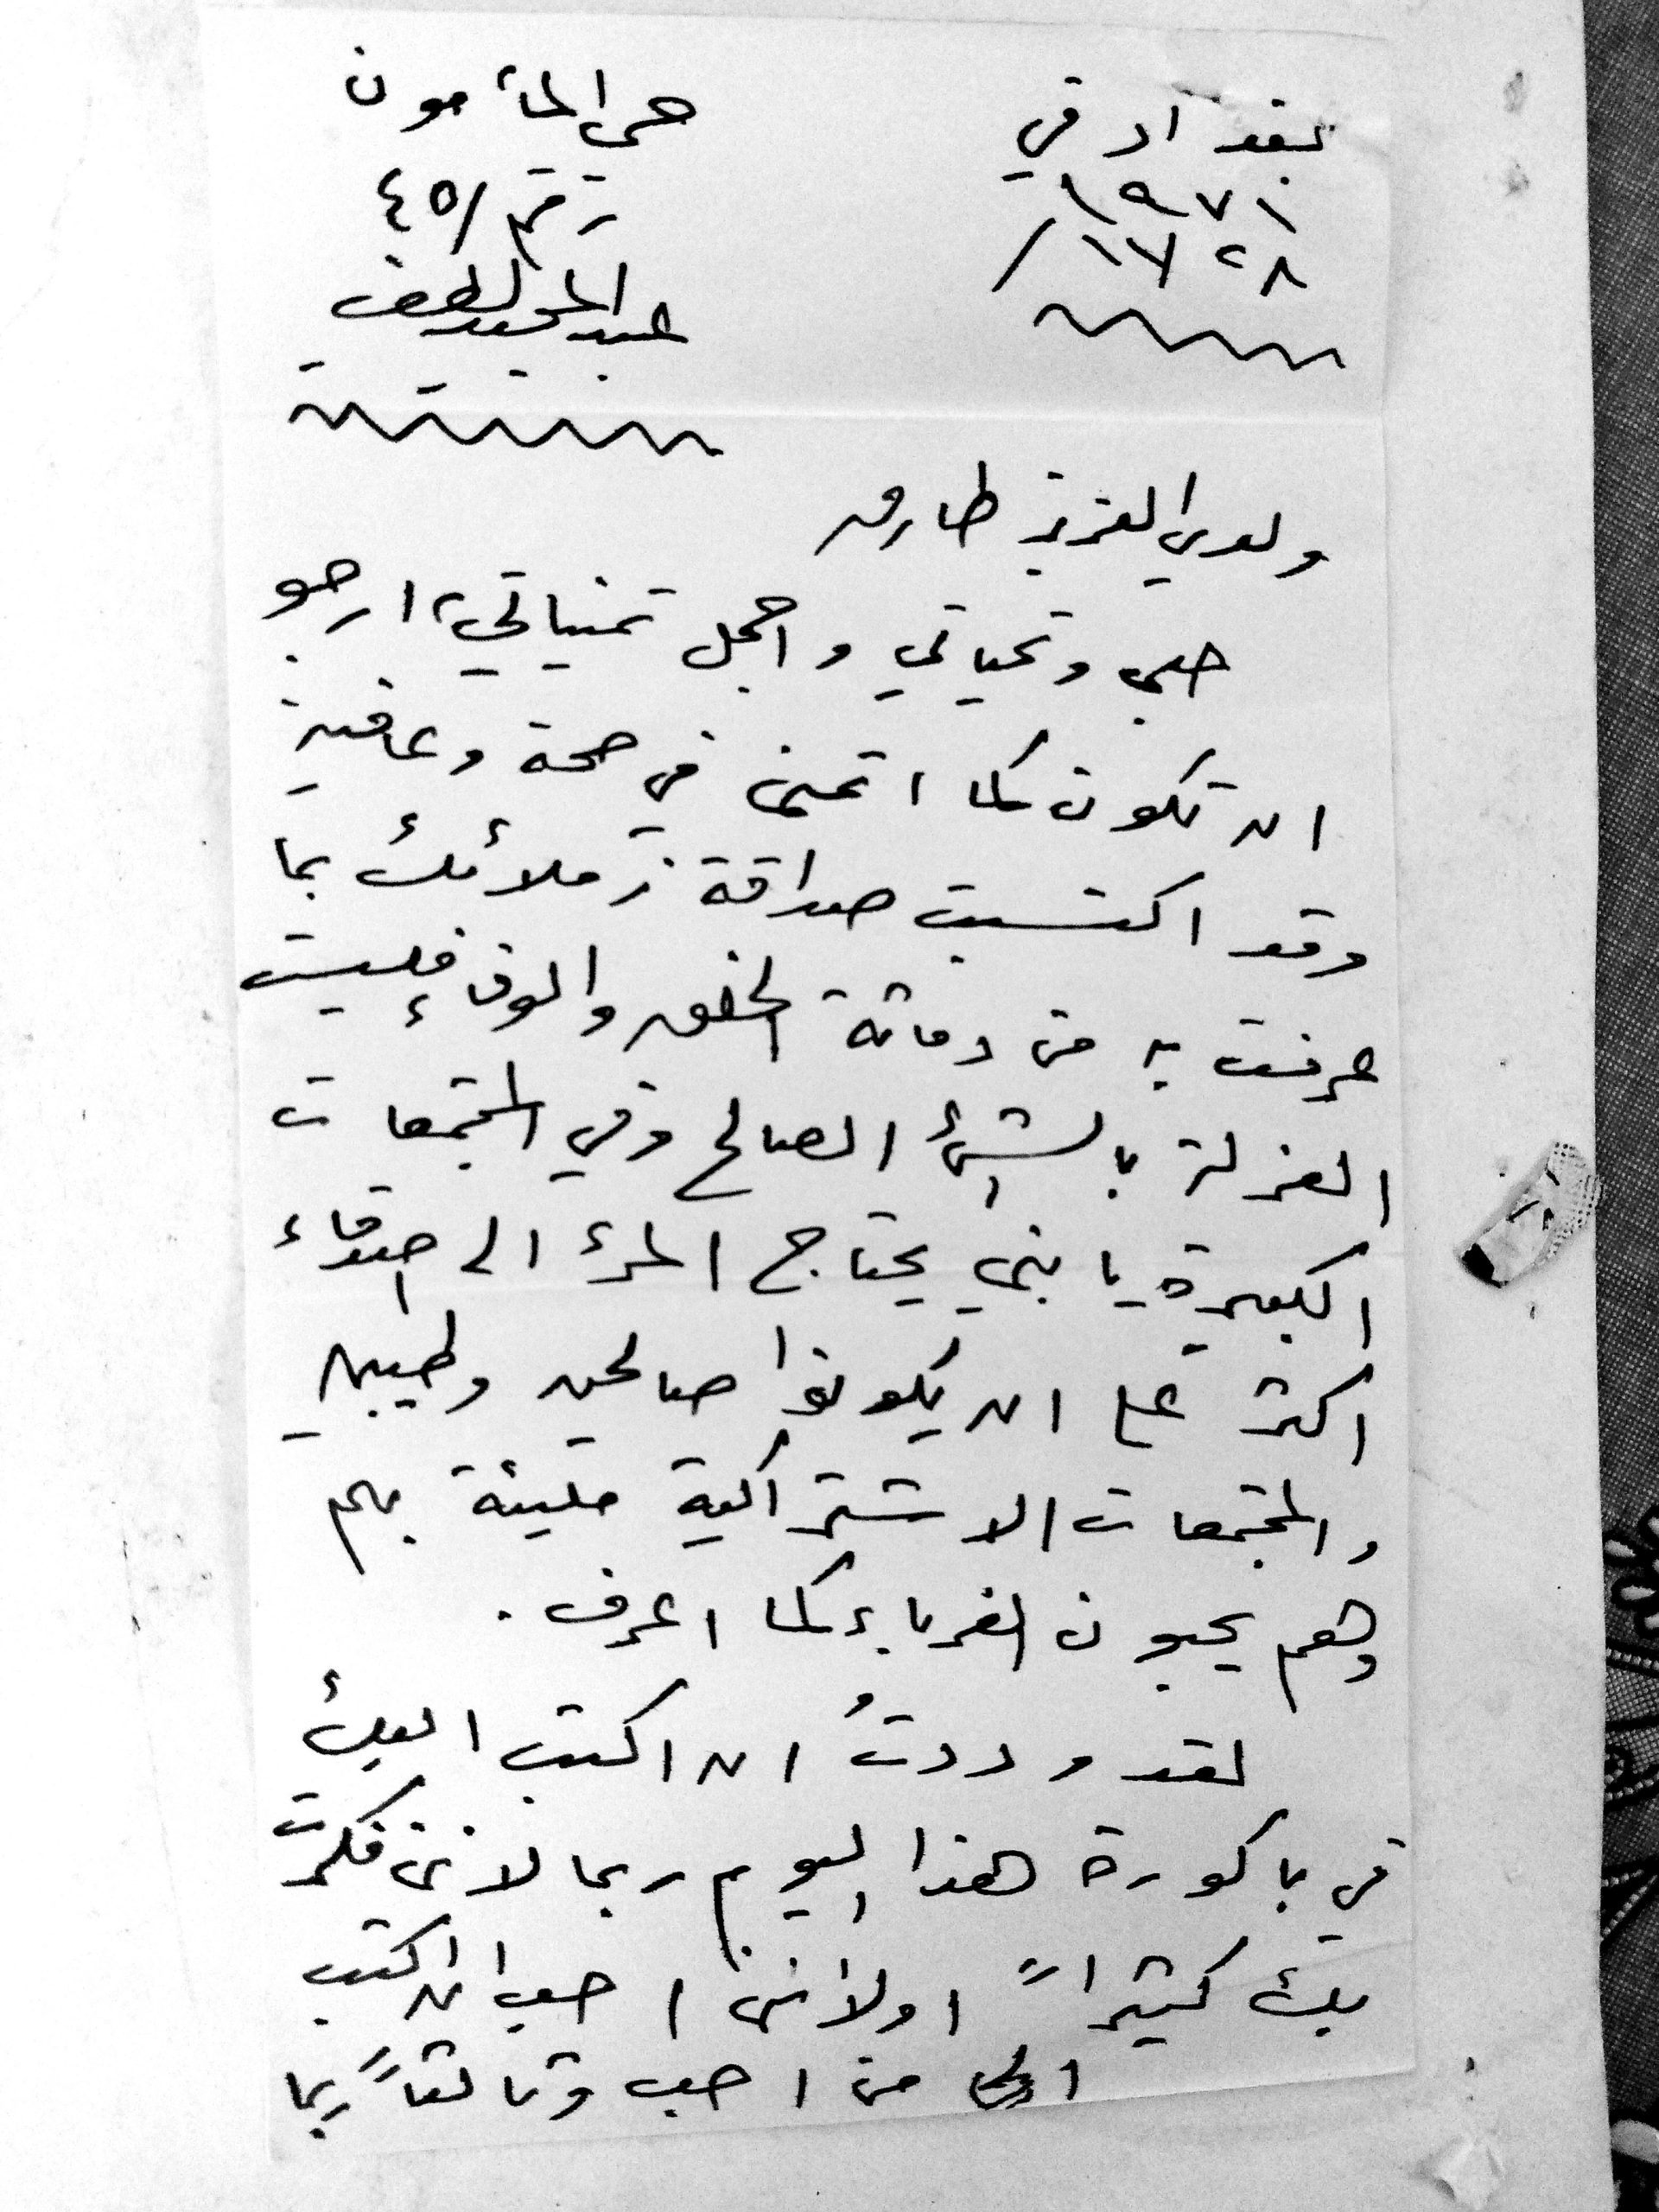 بغداد في
١٩٧١
٢٨/١٢/
حي المأمون
رقم/٤٥
عبد المجيد لطفي
ولدي العزيز طارق
حبي وتحياتي واجمل تمنياتي، ارجو
ان تكون كما اتمنى في صحة وعافية
وقد اكتسبت صداقة زملائك بما
عرفت به من دماثة الخلق والوفاء فليست
العزلة بالشئ الصالح وفي المجتمعات
الكبيرة يا بني يحتاج المرء الى اصدقاء
اكثر على ان يكونوا صالحين وطيبين
والمجتمعات الاشتراكية مليئة بهم
وهم يحبون الغرباء كما اعرف.
لقد وددتُ ان اكتب اليك
في باكورة هذا اليوم ربما لانني فكرت
بك كثيراً اولانني احب ان اكتب
الى من احب وثالثاً ربما